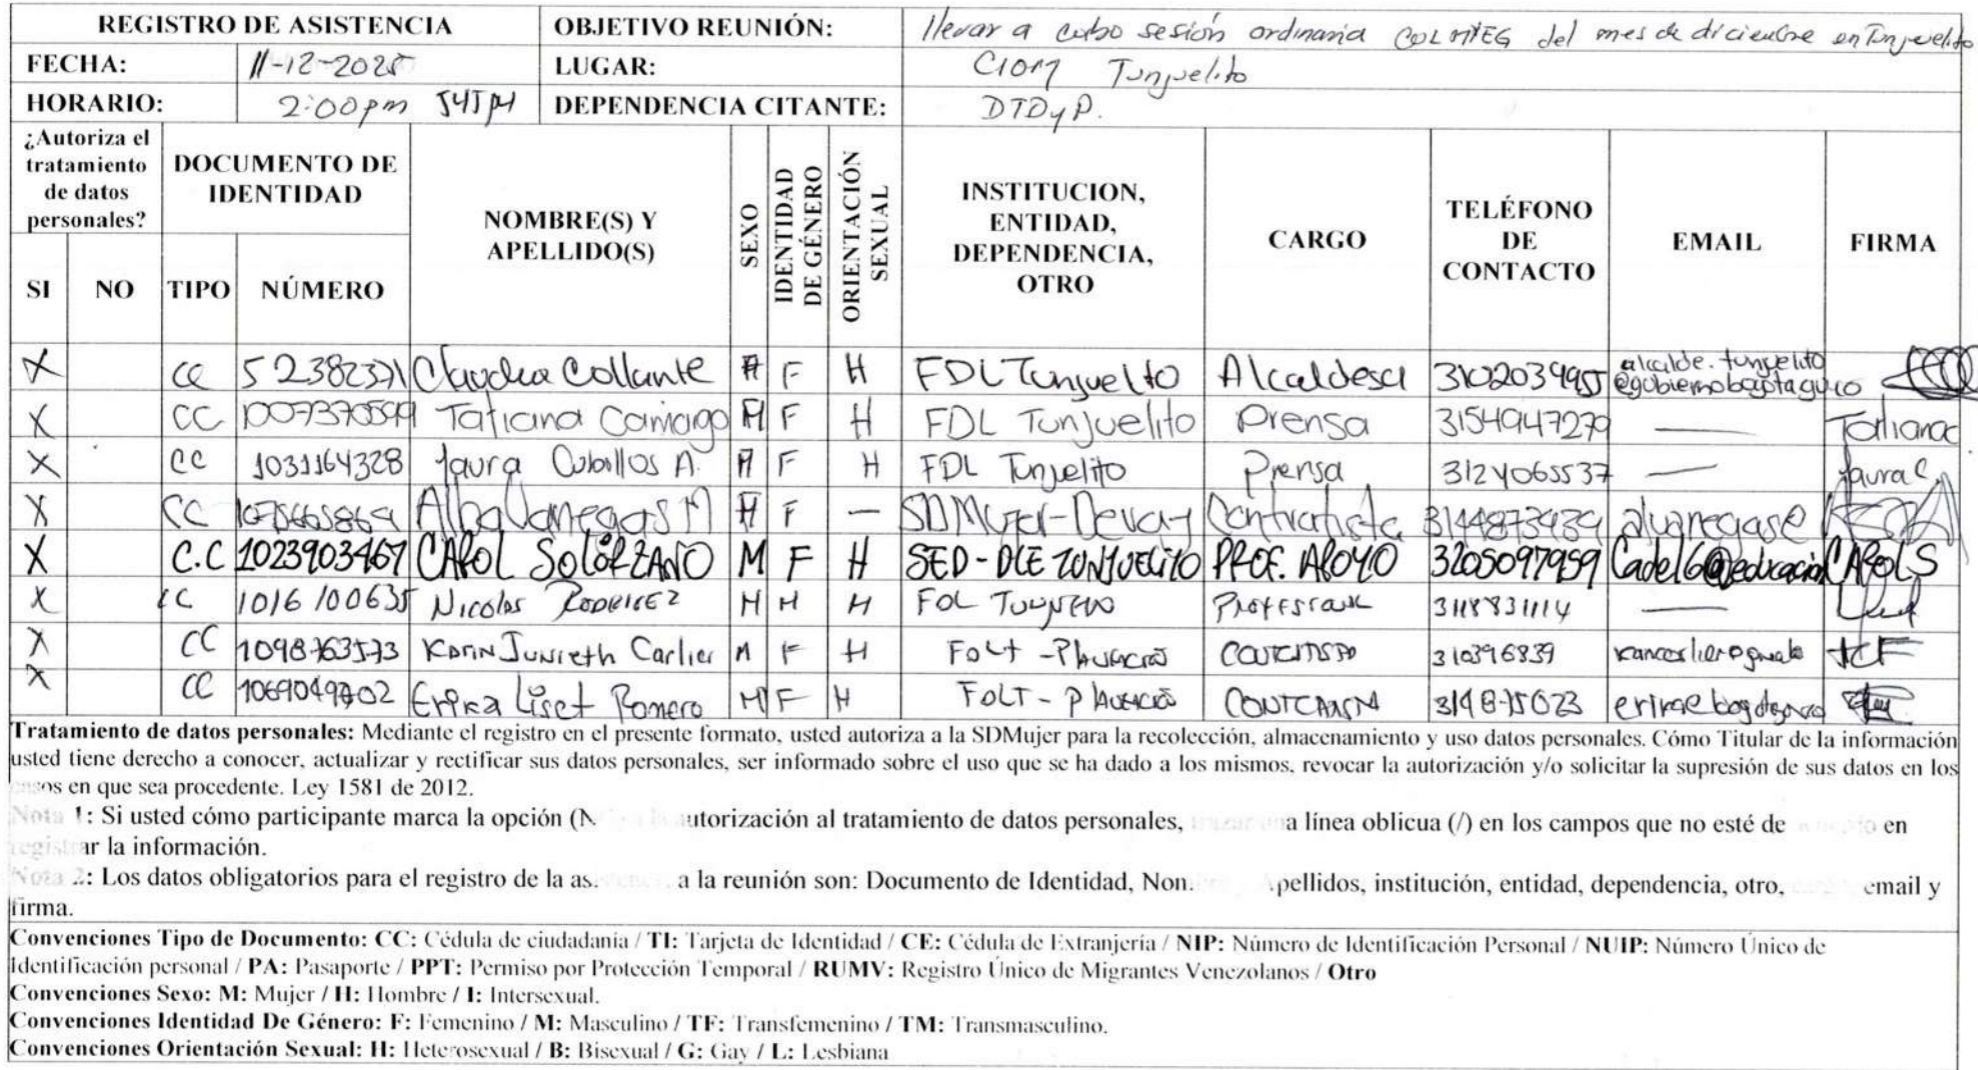 REGISTRO DE ASISTENCIA OBJETIVO REUNIÓN: llevar a cabo sesión ordinaria COLMYEG del mes de diciembre en Tunjuelito
FECHA: 11-12-2025 LUGAR: CIOM Tunjuelito
HORARIO: 2:00pm DEPENDENCIA CITANTE: DTDyP.
¿Autoriza el tratamiento de datos personales? DOCUMENTO DE IDENTIDAD NOMBRE(S) Y APELLIDO(S) SEXO IDENTIDAD DE GÉNERO ORIENTACIÓN SEXUAL INSTITUCION, ENTIDAD, DEPENDENCIA, OTRO CARGO TELÉFONO DE CONTACTO EMAIL FIRMA
SI NO TIPO NÚMERO
X CC 52382371 Claudia Collante F H FDL Tunjuelito Alcaldesa 310203995 alcalde.tunjuelito
X CC 1007370599 Tatiana Camargo F H FDL Tunjuelito Prensa 3154947279 — Tatiana
X CC 1031164328 Laura Cubillos A. F H FDL Tunjuelito Prensa 3124065537 — Laura C
X CC 1075665869 Alba Vanegas M F — SDMujer- Contratista 3144873939
X C.C 1023903467 CAROL SOLÓRZANO M F H SED-DLE TUNJUELITO PROF. APOYO 3205097959 Cadel6@educacion CAROL S
X CC 1016100635 Nicolas RODRIGEZ H H H FDL 3118831114 —
X CC 1098763573 Karin Junieth Carlier M F H FDLT - 310396839
X CC 1069049702 Erika Liset Romero M F H FDLT -
Tratamiento de datos personales: Mediante el registro en el presente formato, usted autoriza a la SDMujer para la recolección, almacenamiento y uso datos personales. Cómo Titular de la información
usted tiene derecho a conocer, actualizar y rectificar sus datos personales, ser informado sobre el uso que se ha dado a los mismos, revocar la autorización y/o solicitar la supresión de sus datos en los
casos en que sea procedente. Ley 1581 de 2012.
Nota 1: Si usted cómo participante marca la opción (N utorización al tratamiento de datos personales, a línea oblicua (/) en los campos que no esté de en
registrar la información.
Nota 2: Los datos obligatorios para el registro de la as. a la reunión son: Documento de Identidad, Nom pellidos, institución, entidad, dependencia, otro, email y
firma.
Convenciones Tipo de Documento: CC: Cédula de ciudadanía / TI: Tarjeta de Identidad / CE: Cédula de Extranjería / NIP: Número de Identificación Personal / NUIP: Número Único de
Identificación personal / PA: Pasaporte / PPT: Permiso por Protección Temporal / RUMV: Registro Único de Migrantes Venezolanos / Otro
Convenciones Sexo: M: Mujer / H: Hombre / I: Intersexual.
Convenciones Identidad De Género: F: Femenino / M: Masculino / TF: Transfemenino / TM: Transmasculino.
Convenciones Orientación Sexual: H: Heterosexual / B: Bisexual / G: Gay / L: Lesbiana